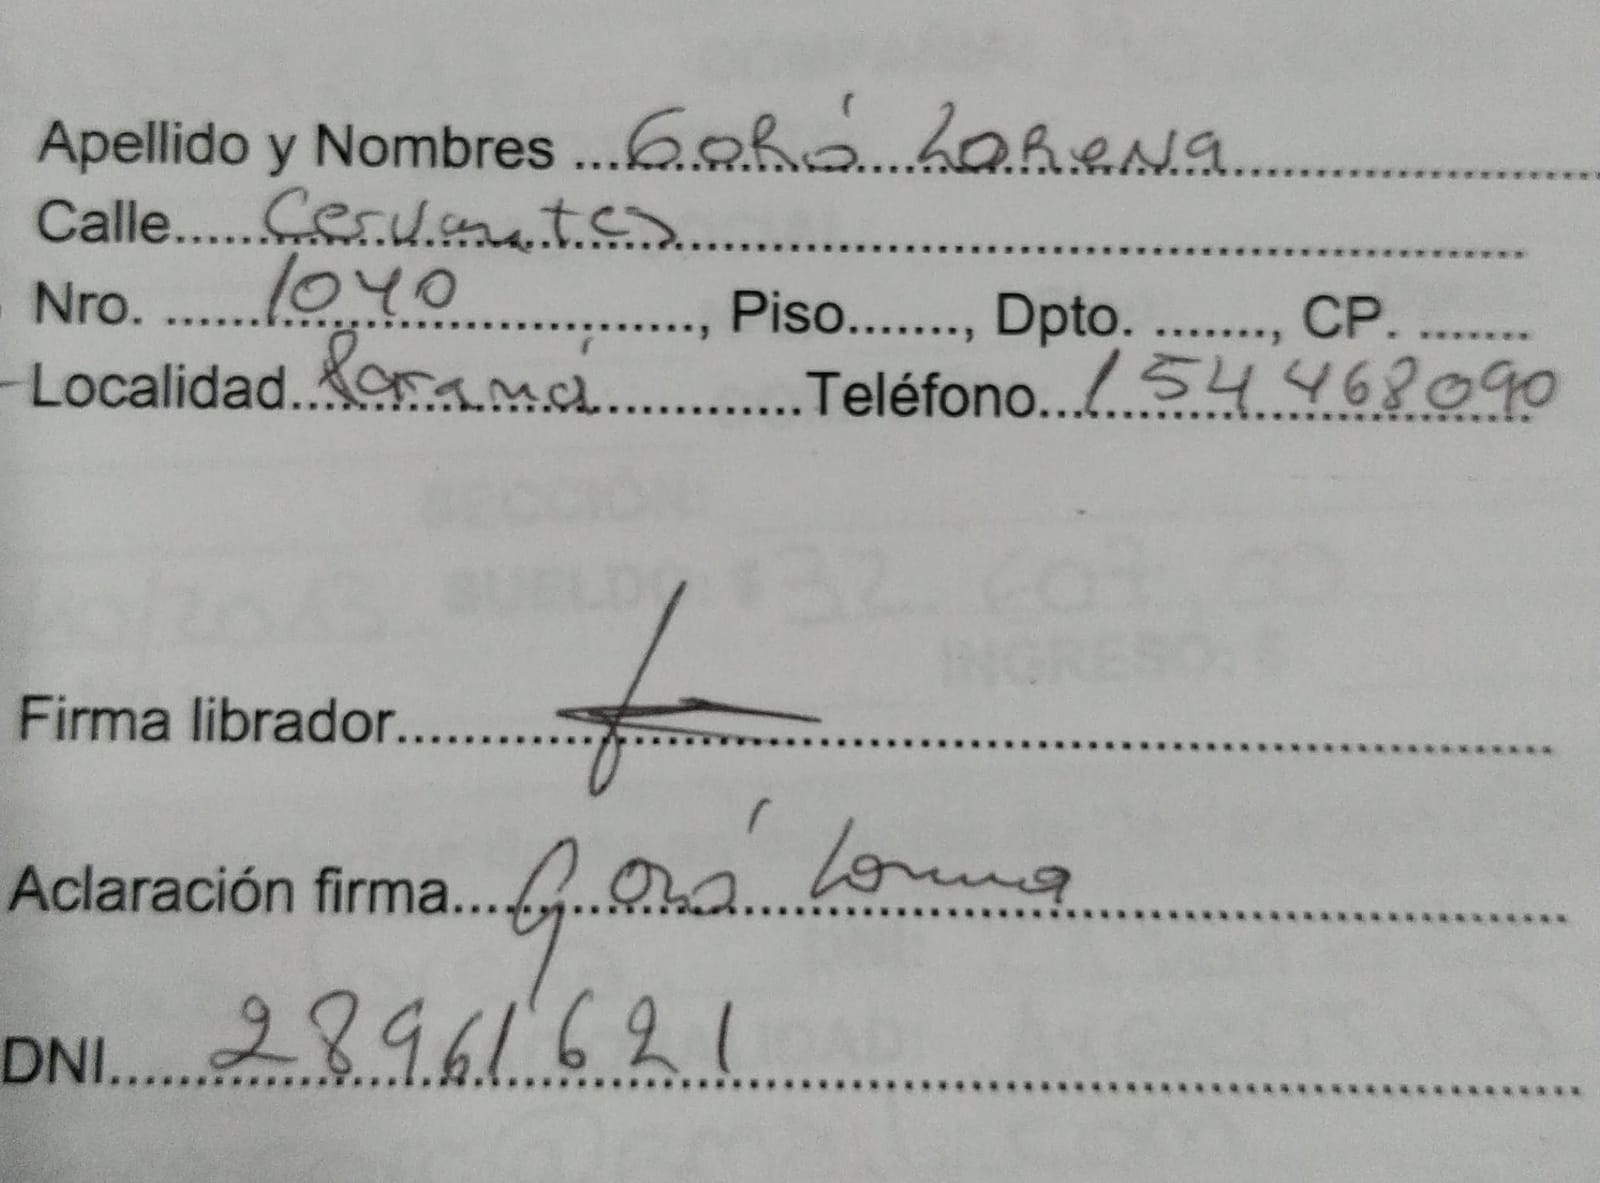 Apellido y Nombres ... Goró Lorena
Calle..... Cervantes
Nro. ...... 1040 ......, Piso......., Dpto. ......., CP. .......
Localidad.. Paraná ............Teléfono... 154468090
Firma librador..........
Aclaración firma.... Goró Lorena
DNI..... 28961621